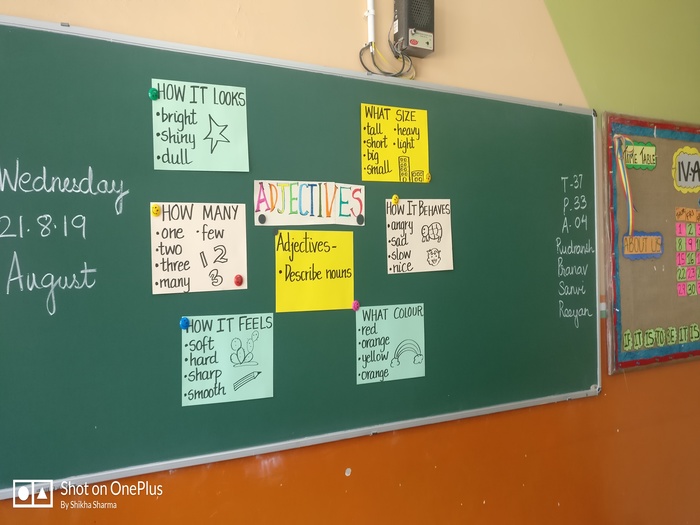 Wednesday
21.8.19
August
HOW IT LOOKS
• bright
• shiny
• dull
WHAT SIZE
• tall • heavy
• short • light
• big
• small
ADJECTIVES
HOW MANY
• one • few
• two
• three
• many
1 2
3
Adjectives-
• Describe nouns
HOW IT BEHAVES
• angry
• sad
• slow
• nice
HOW IT FEELS
• soft
• hard
• sharp
• smooth
WHAT COLOUR
• red
• orange
• yellow
• orange
T-37
P-33
A-04
Rudransh
Pranav
Sanvi
Reeyan
TIME TABLE
IV-A
ABOUT US
IF IT IS TO BE IT IS
Shot on OnePlus
By Shikha Sharma